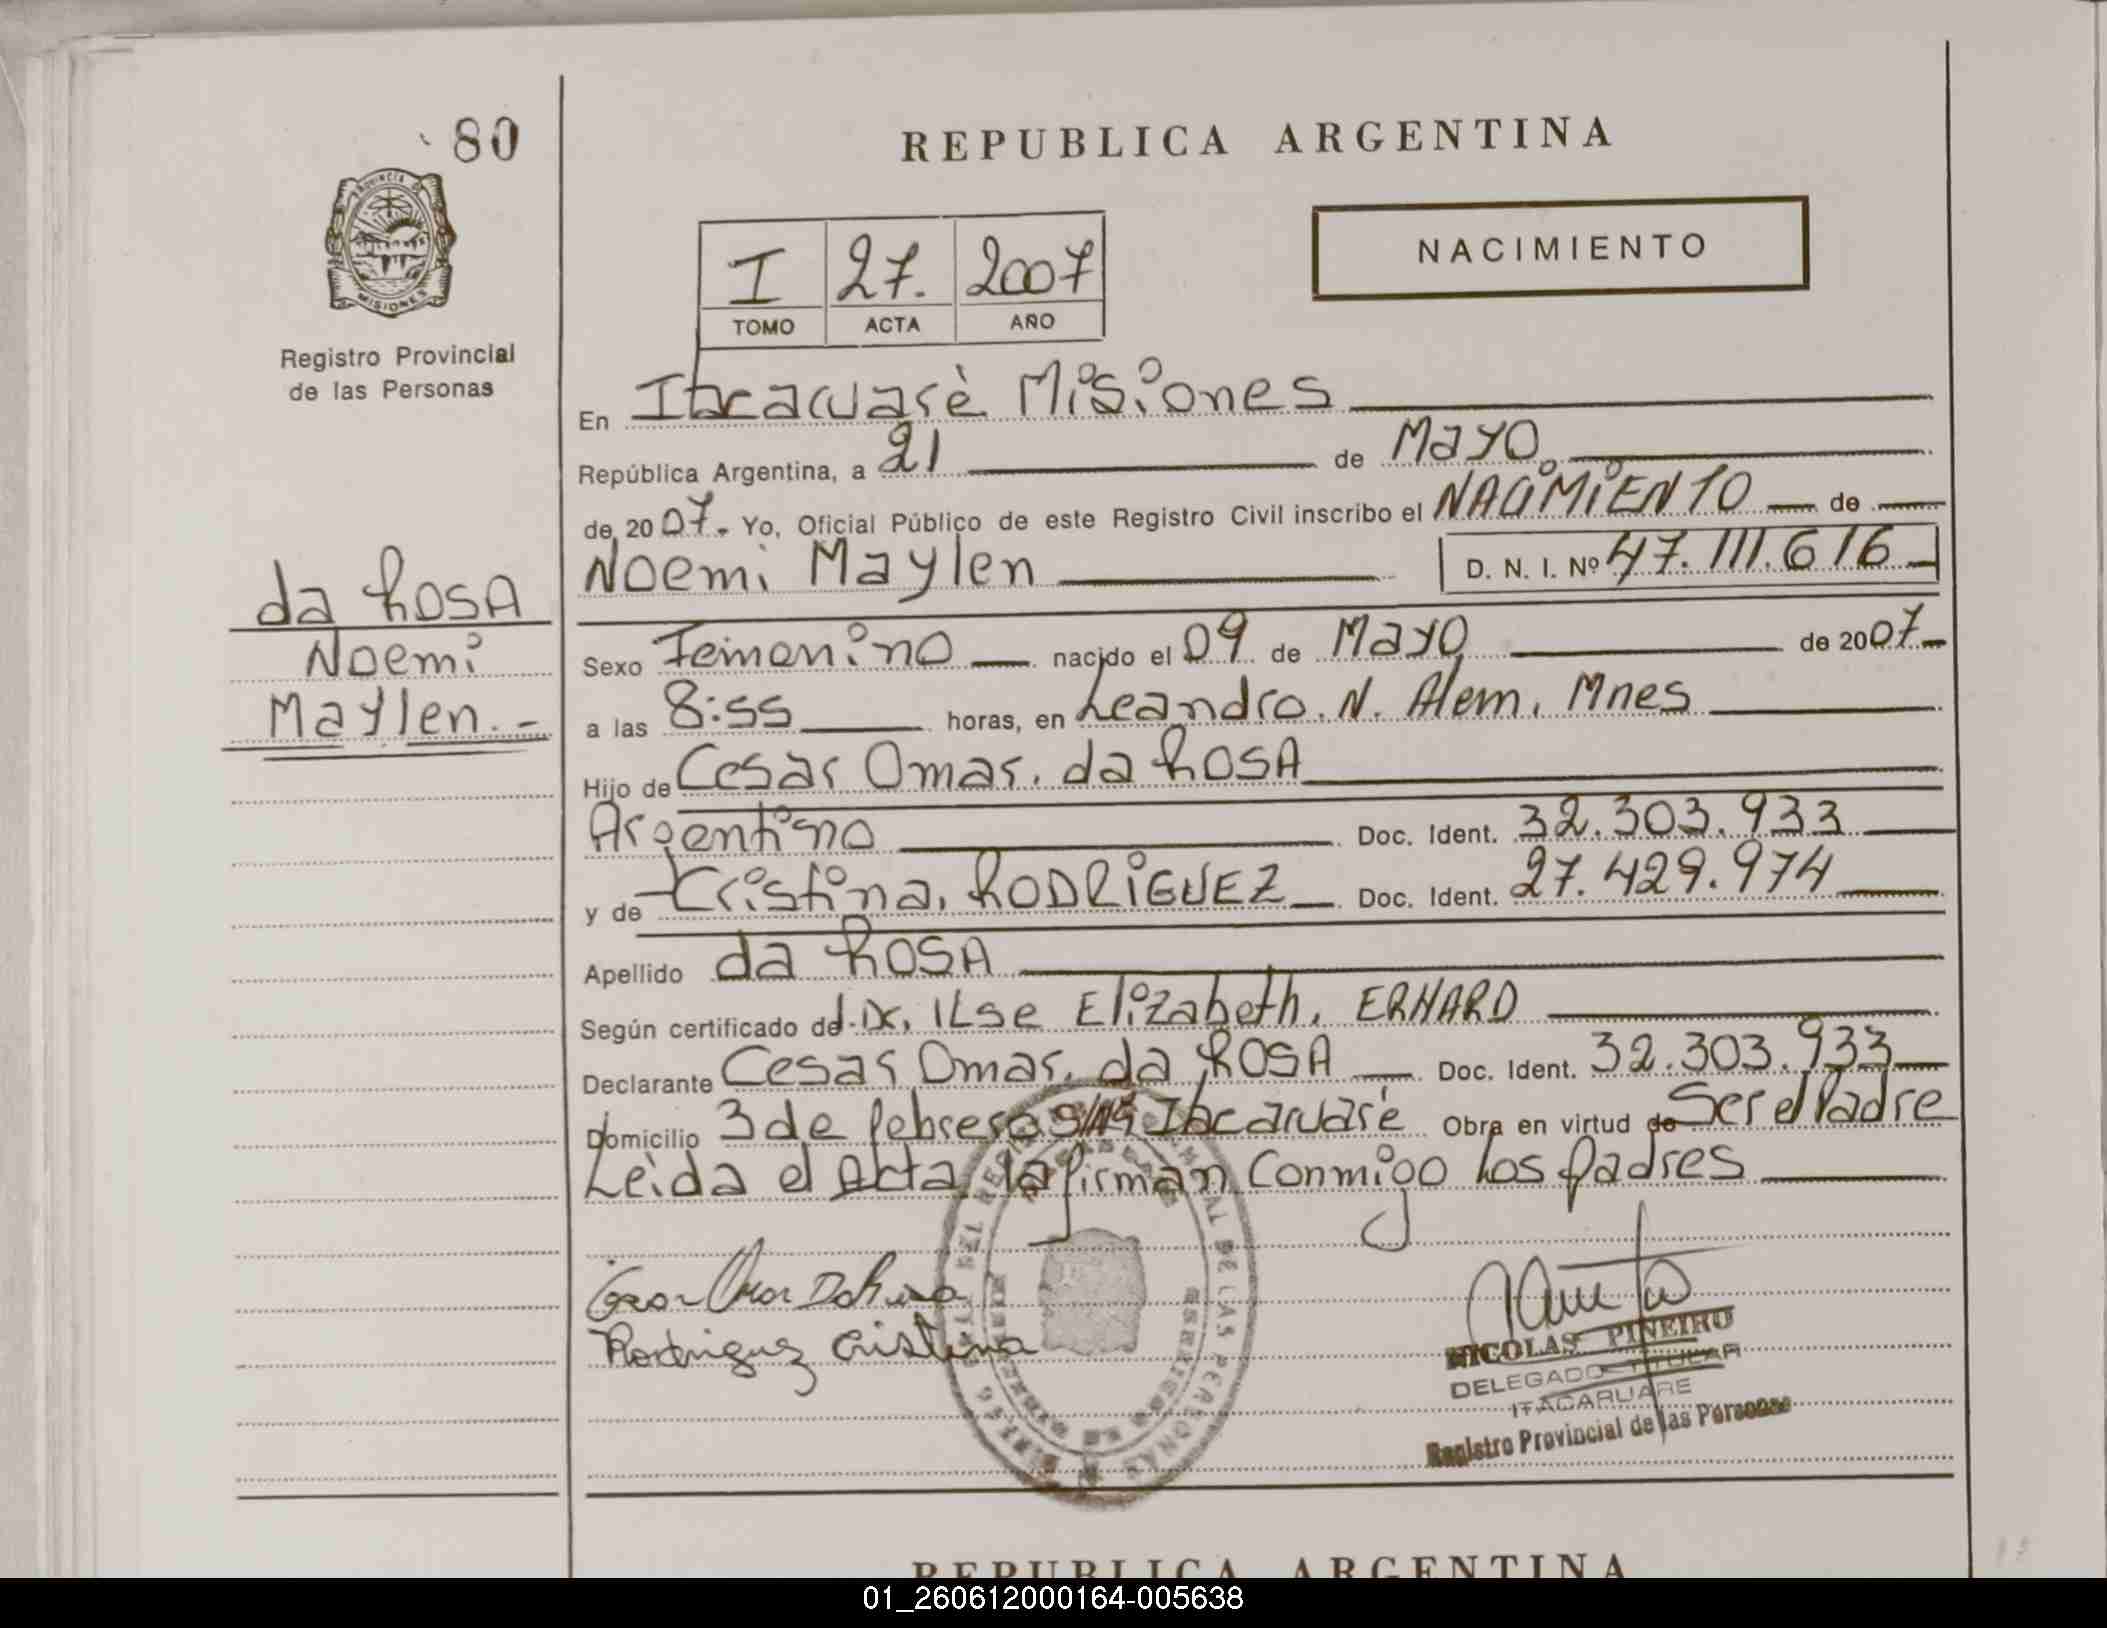 80
REPUBLICA ARGENTINA
PROVINCIA DE
MISIONES
Registro Provincial
de las Personas
NACIMIENTO
I 27. 2007
TOMO ACTA AÑO
En Itacaruarè Misiones
República Argentina, a 21 de Mayo
de 2007. Yo, Oficial Público de este Registro Civil inscribo el NACIMIENTO de
Noemi Maylen D. N. I. Nº 47.111.616
da ROSA
Noemi
Maylen.-
Sexo Femenino nacido el 09 de Mayo de 2007.
a las 8:55 horas, en Leandro. N. Alem. Mnes
Hijo de Cesar Omar. da ROSA
Argentino Doc. Ident. 32.303.933
y de Cristina. RODRiGUEZ Doc. Ident. 27.429.974
Apellido da ROSA
Según certificado de ILse Elizabeth. ERHARD
Declarante Cesar Omar. da ROSA Doc. Ident. 32.303.933
Domicilio 3 de febrero S/Nº Itacaruaré Obra en virtud de Ser el Padre
Leida el Acta la firman Conmigo Los padres
Cesar Omar Da Rosa
Rodriguez Cristina
NICOLAS PIÑEIRO
DELEGADO TITULAR
ITACARUARE
Registro Provincial de las Personas
DE LAS PERSONAS
REPUBLICA ARGENTINA
01_260612000164-005638